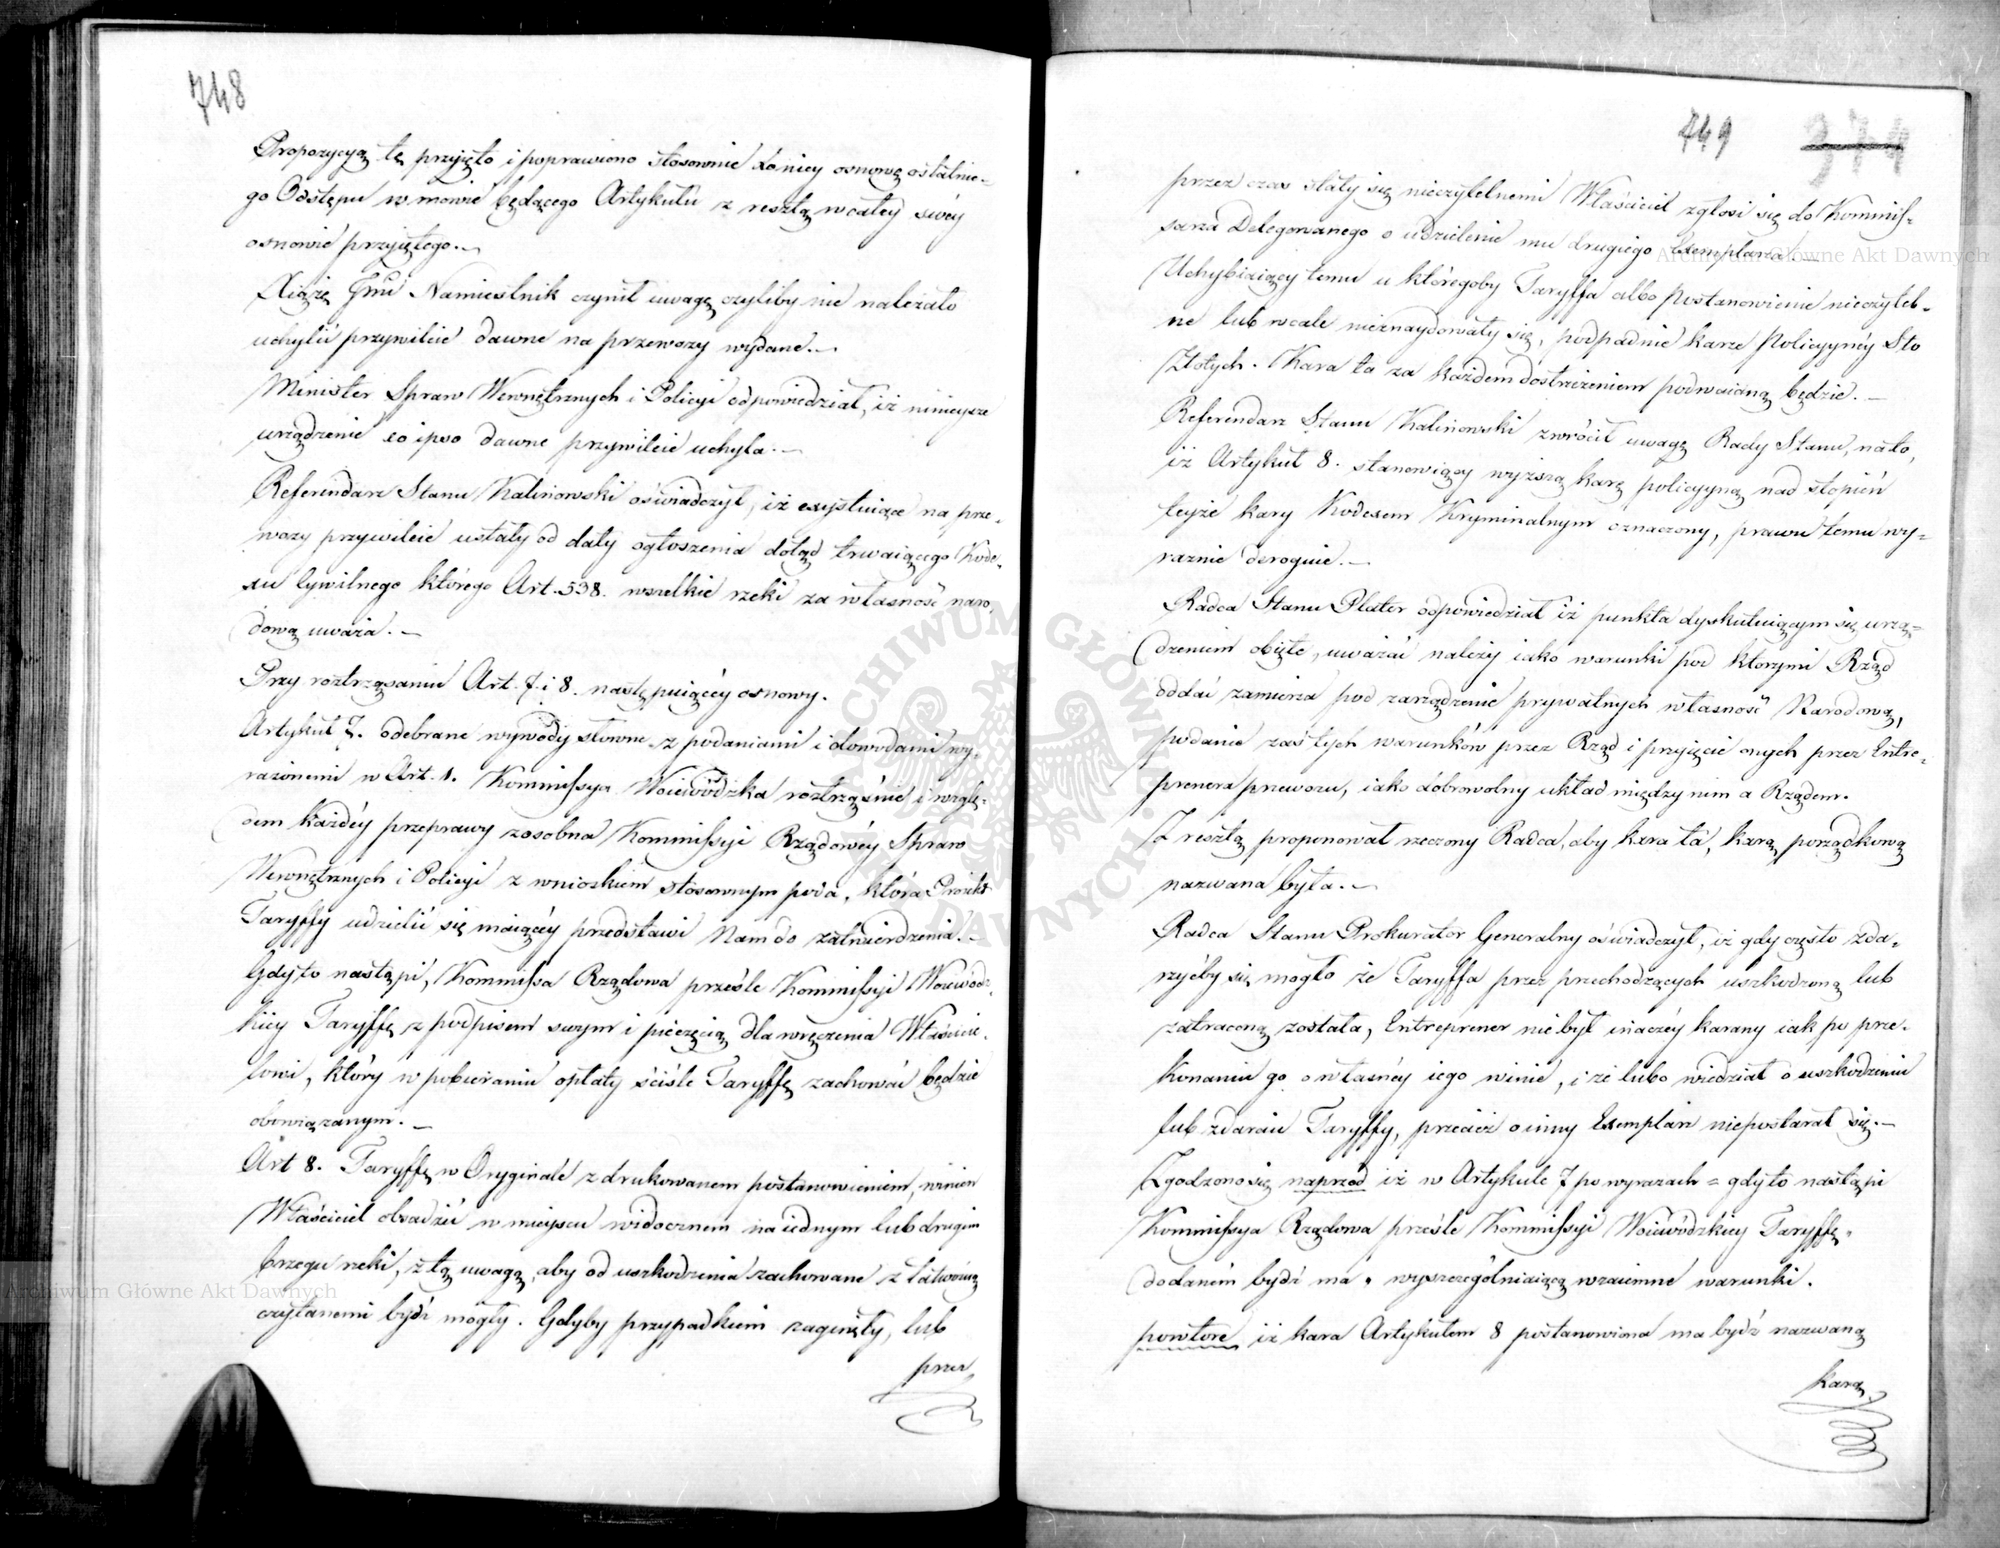 748
Propozycyą tę przyięto i poprawiono stosownie do niey osnowę ostatnie-
go Odstępu w mowie będącego Artykułu z resztą w całey swéy
osnowie przyiętego.—
Xiążę Jmć Namiestnik czynił uwagę czyliby nie należało
uchylić przywileie dawne na przewozy wydane.—
Minister Spraw Wewnętrznych i Policyi odpowiedział, iż ninieysze
urządzenie eo ipso dawne przywileie uchyla.—
Referendarz Stanu Kalinowski oświadczył, iż exystuiące na prze-
wozy przywileie ustały od daty ogłoszenia dotąd trwaiącego Kode-
xu Cywilnego którego Art. 538. wszelkie rzeki za własność naro
dową uważa.—
Przy roztrząsaniu Art. 7. i 8. następuiącéy osnowy.
Artykuł 7. odebrane wywody słowne z podaniami i dowodami wy-
rażonemi w Art. 1. Kommissya Woiewódzka roztrząśnie i wzglę-
dem każdéy przeprawy zosobna Kommissyi Rządowéy Spraw
Wewnętrznych i Policyi z wnioskiem stosownym poda, która Proiekt
Taryffy udzielić się maiącéy przedstawi Nam do zatwierdzenia.—
Gdy to nastąpi, Kommissa Rządowa prześle Kommissyi Woiewódz-
kiey Taryffę z podpisem swym i pieczęcią dla wręczenia Właścicie-
lowi, który w pobieraniu opłaty ściśle Taryffę zachować będzie
obowiązanym.—
Art 8. Taryffę w Oryginale z drukowanem postanowieniem, winien
Właściciel osadzić w mieyscu widocznem na iednym lub drugim
brzegu rzeki, z tą uwagą, aby od uszkodzenia zachowane z łatwością
czytanemi bydź mogły. Gdyby przypadkiem zaginęły, lub
przez
749
374
przez czas stały się nieczytelnemi Właściciel zgłosi się do Kommis-
sarza Delegowanego o udzielenie mu drugiego Exemplarza.—
Uchybiaiący temu u któregoby Taryffa albo postanowienie nieczytel-
ne lub wcale nieznaydowały się, podpadnie karze Policyynéy Sto
Złotych. Kara ta za każdem dostrzeżeniem podwaianą będzie.—
Referendarz Stanu Kalinowski zwrócił uwagę Rady Stanu, na to,
iż Artykuł 8. stanowiący wyższą karę policyyną nad stopień
teyże kary Kodexem Kryminalnym oznaczony, prawu temu wy-
raznie deroguie.—
Radca Stanu Plater odpowiedział iż punkta dyskutuiącym się urzą-
dzeniem obięte, uważać należy iako warunki pod któremi Rząd
oddać zamierza pod zarządzenie prywatnych własność Narodową,
podanie zaś tych warunków przez Rząd i przyięcie onych przez Entre-
prenera przewozu, iako dobrowolny układ między nim a Rządem.
Z resztą proponował rzeczony Radca, aby kara ta, karą porządkową
nazwana była.—
Radca Stanu Prokurator Generalny oświadczył, iż gdy często zda-
rzyćby się mogło że Taryffa przez przechodzących uszkodzoną lub
zatraconą została, Entreprener nie był inaczéy karany iak po prze-
konaniu go o własnéy iego winie, i że lubo wiedział o uszkodzeniu
lub zdarciu Taryffy, przecież o inny Exemplarz niepostarał się.—
Zgodzono się naprzód iż w Artykule 7 po wyrazach = gdy to nastąpi
Kommissya Rządowa prześle Kommissyi Woiewódzkiey Taryffę "
dodaném bydź ma " wyszczególniaiącą wzaiemne warunki.
powtore iż kara Artykułem 8 postanowiona ma bydź nazwaną
karą
Archiwum Główne Akt Dawnych
Archiwum Główne Akt Dawnych
ARCHIWUM GŁÓWNE AKT DAWNYCH